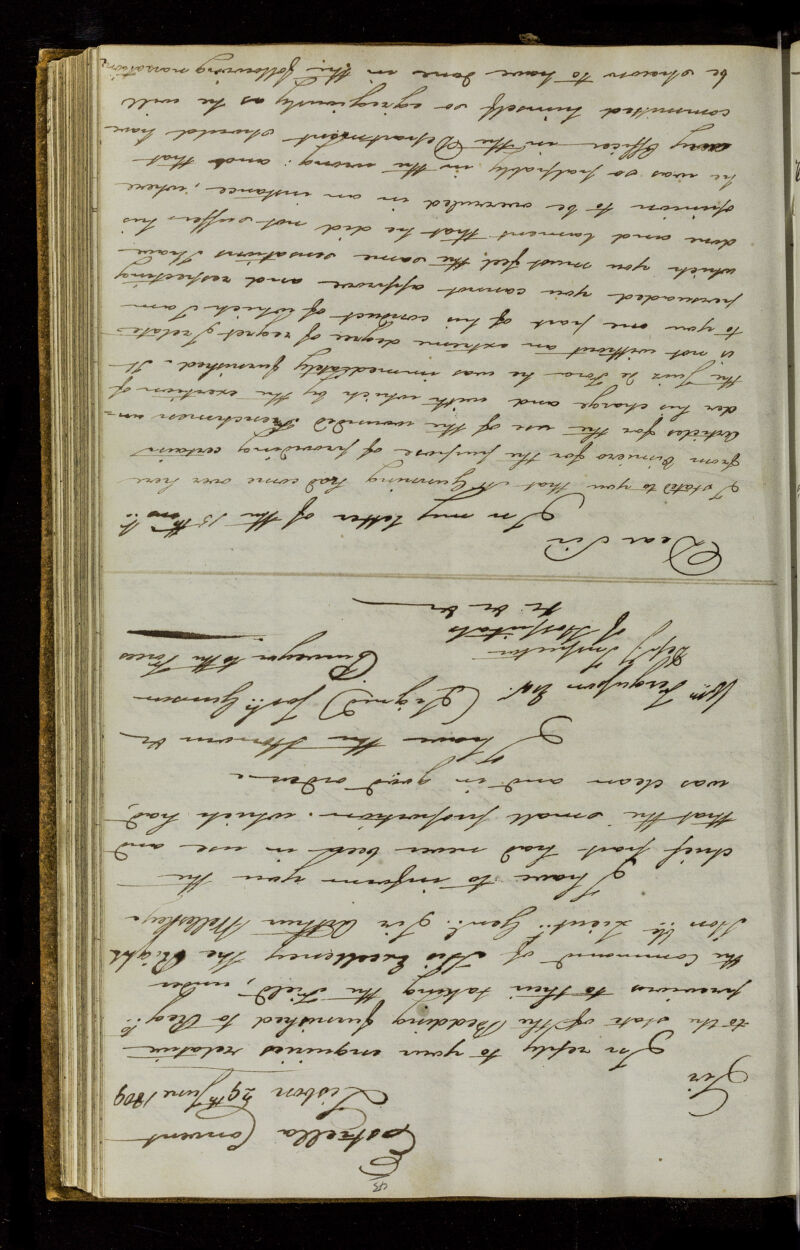 43
Estrella Convent
Lisbon 29th June 1809
Sir
In reply to your enquiries relative
to the state of the Bedding furnished to Regts
previous to their taking the Field, under
the Command of His Excellency The Right
Honble Lieut. Genl. Sir Arthur Wellesley
I have to inform you the
chief part had never been in use and
that the small proportion which had,
was clean and in good order
I have the Honour &c
Wm Fergusson Esqr. (Signed) Josh. Gunson
Depy Inspector Purveyor to the Forces
of Hospitals
&c &c &c
Dear Sir
In my letter of the 15th
I stated to you that Mr Gunning had come over here
from Vimiero for the purpose of providing certain
Articles for the use of the wounded Frenchmen un-
der his charge and with which by the exertion of
the Juiz de Fora he was immediately furnished. It
is not without an extreme degree of regret I relate
to you one part of his conduct of which I am
persuaded you cannot approve and respecting
which you must feel the same sensations I have
done and lament that he did not suffer his
opinion to be overruled in an instance, where
he was so palpably in the wrong; and that
any Officer in the Department should have
committed himself so egregiously as he will
be shewn to have done in the following narration